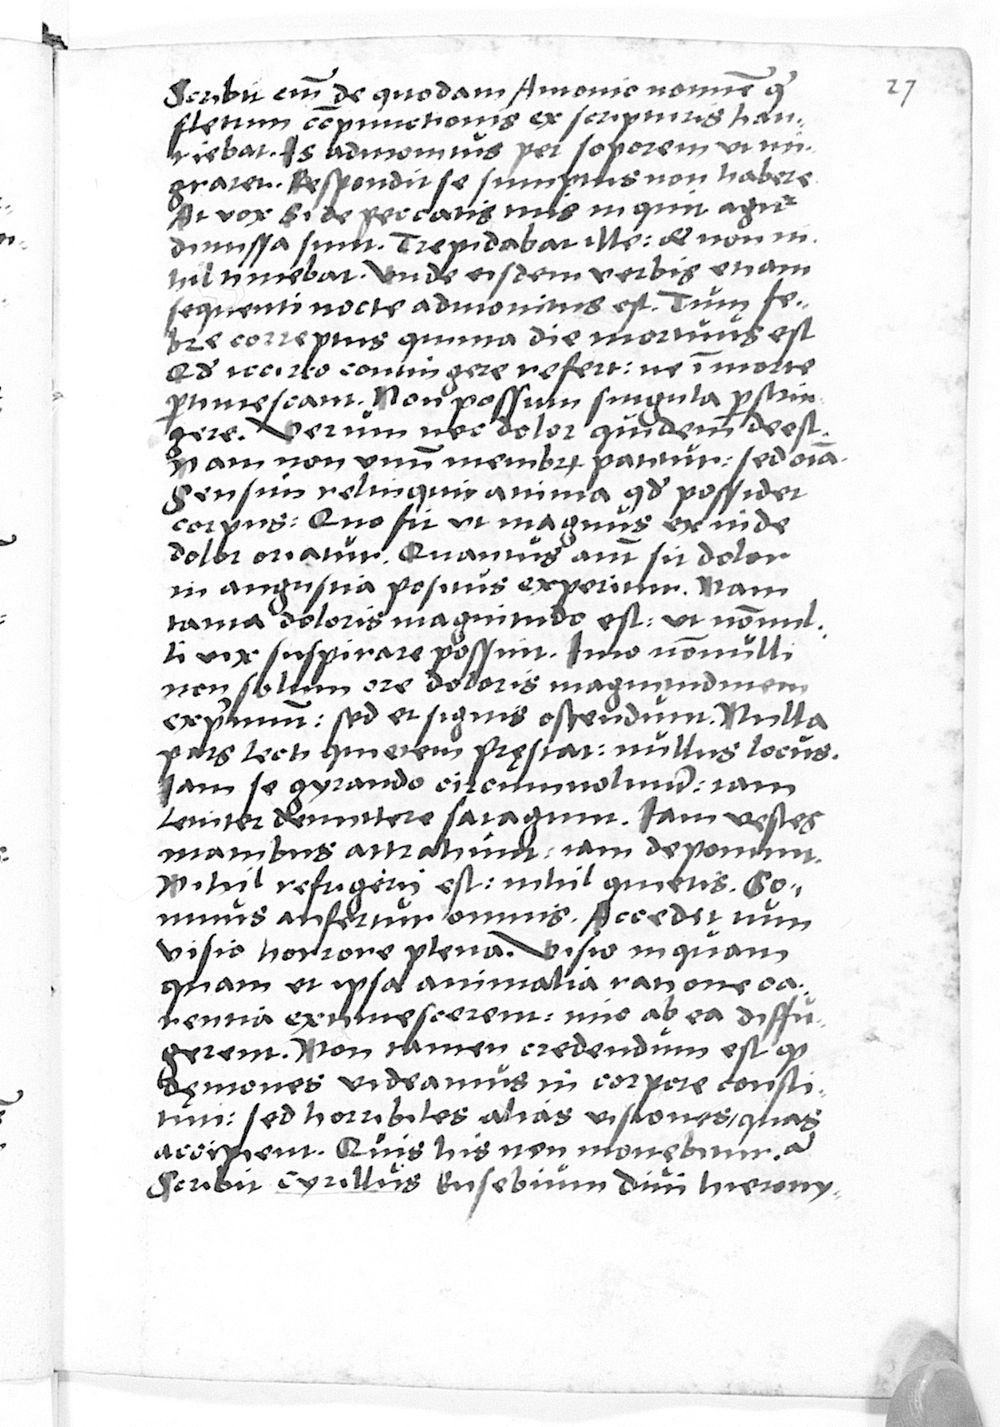 27
Scribit eni̅ de quodam Antonio nomine̅ q
fletum co̅punctionis ex scripturis hau-
riebat. Is admonitus per soporem ut mi-
graret. Respondit se sumptus non habere
At vox Si de peccatis tuis inquit agitr
dimissa sunt. Trepidabat ille: & non ni
hil timebat. Unde eisdem verbis etiam
sequenti nocte admonitus est. Tum fe-
bre correptus quinta die mortuus est
Qd iccirco contingere refert: ne i̅ morte
ptimescant. Non possum singula pstrin
gere. Verum nec dolor quidem deest.
Nam non unu̅ membrx patitur: sed oi̅a.
Sensim relinquit anima qd possidet
corpus: Quo fit ut magnus exinde
dolor oriatur. Quantus aut̅ sit dolor
in angustia positus experitur. Nam
tanta doloris magnitudo est: ut no̅nul-
li vix suspirare possint. Imo no̅nulli
non solum ore doloris magnitudinem
exprimu̅t: sed et signis ostendunt. Nulla
pars lecti quietem pręstat: nullus locus.
Iam se gyrando circumvoluu̅t: iam
leniter demittere satagunt. Iam vestes
manibus attrahunt: iam deponunt.
Nihil refrigerij est: nihil quietis. So-
mnus aufertur omnis. Accedit tum
visio horrore plena. Visio inquam
quam et ipsa animalia ratione ca-
rentia extimescerent: imo ab ea diffu-
gerent. Non tamen credendum est q
dęmones videamus in corpore consti-
tuti: sed horribiles alias visiones, quas
accipient. Quis his non movebitur. a
Scribit Cyrillus Eusebium divi hierony-